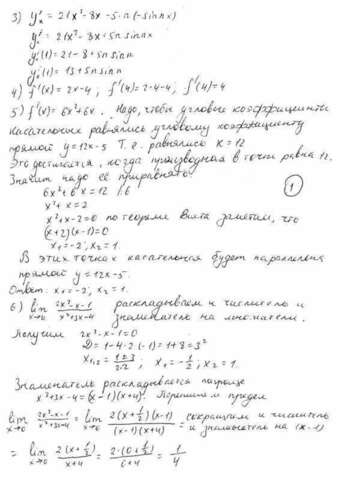 3) y'ₙ = 21x² - 8x - 5·n (-sin nx)
y'ₙ = 21x² - 8x + 5n sin nx
y'ₙ(1) = 21 - 8 + 5n sin n
y'ₙ(1) = 13 + 5n sin n
4) f'(x) = 2x - 4; f'(4) = 2·4 - 4; f'(4) = 4
5) f'(x) = 6x² + 6x. Надо, чтобы угловые коэффициенты
касательных равнялись угловому коэффициенту
прямой y = 12x - 5 Т.е. равнялись k = 12
Это достигается, когда производная в точке равна 12.
Значит надо её приравнять
6x² + 6x = 12 /:6
x² + x = 2
x² + x - 2 = 0 по теореме Виета заметим, что
(x+2)(x-1) = 0
x₁ = -2; x₂ = 1.
1
В этих точках касательная будет параллельна
прямой y = 12x - 5.
Ответ: x₁ = -2; x₂ = 1.
6) lim x→0 (2x² - x - 1)/(x² + 3x - 4) раскладываем и числитель и
знаменатель на множители.
Получим 2x² - x - 1 = 0
D = 1 - 4·2·(-1) = 1 + 8 = 3²
x₁,₂ = (1±3)/(2·2); x₁ = -1/2; x₂ = 1.
Знаменатель раскладывается попроще
x² + 3x - 4 = (x-1)(x+4). Перепишем предел
lim x→0 (2x² - x - 1)/(x² + 3x - 4) = lim x→0 2(x + 1/2)(x-1)/((x-1)(x+4)) = сократим и числитель и знаменатель на (x-1)
= lim x→0 2(x + 1/2)/(x+4) = 2·(0 + 1/2)/(0+4) = 1/4